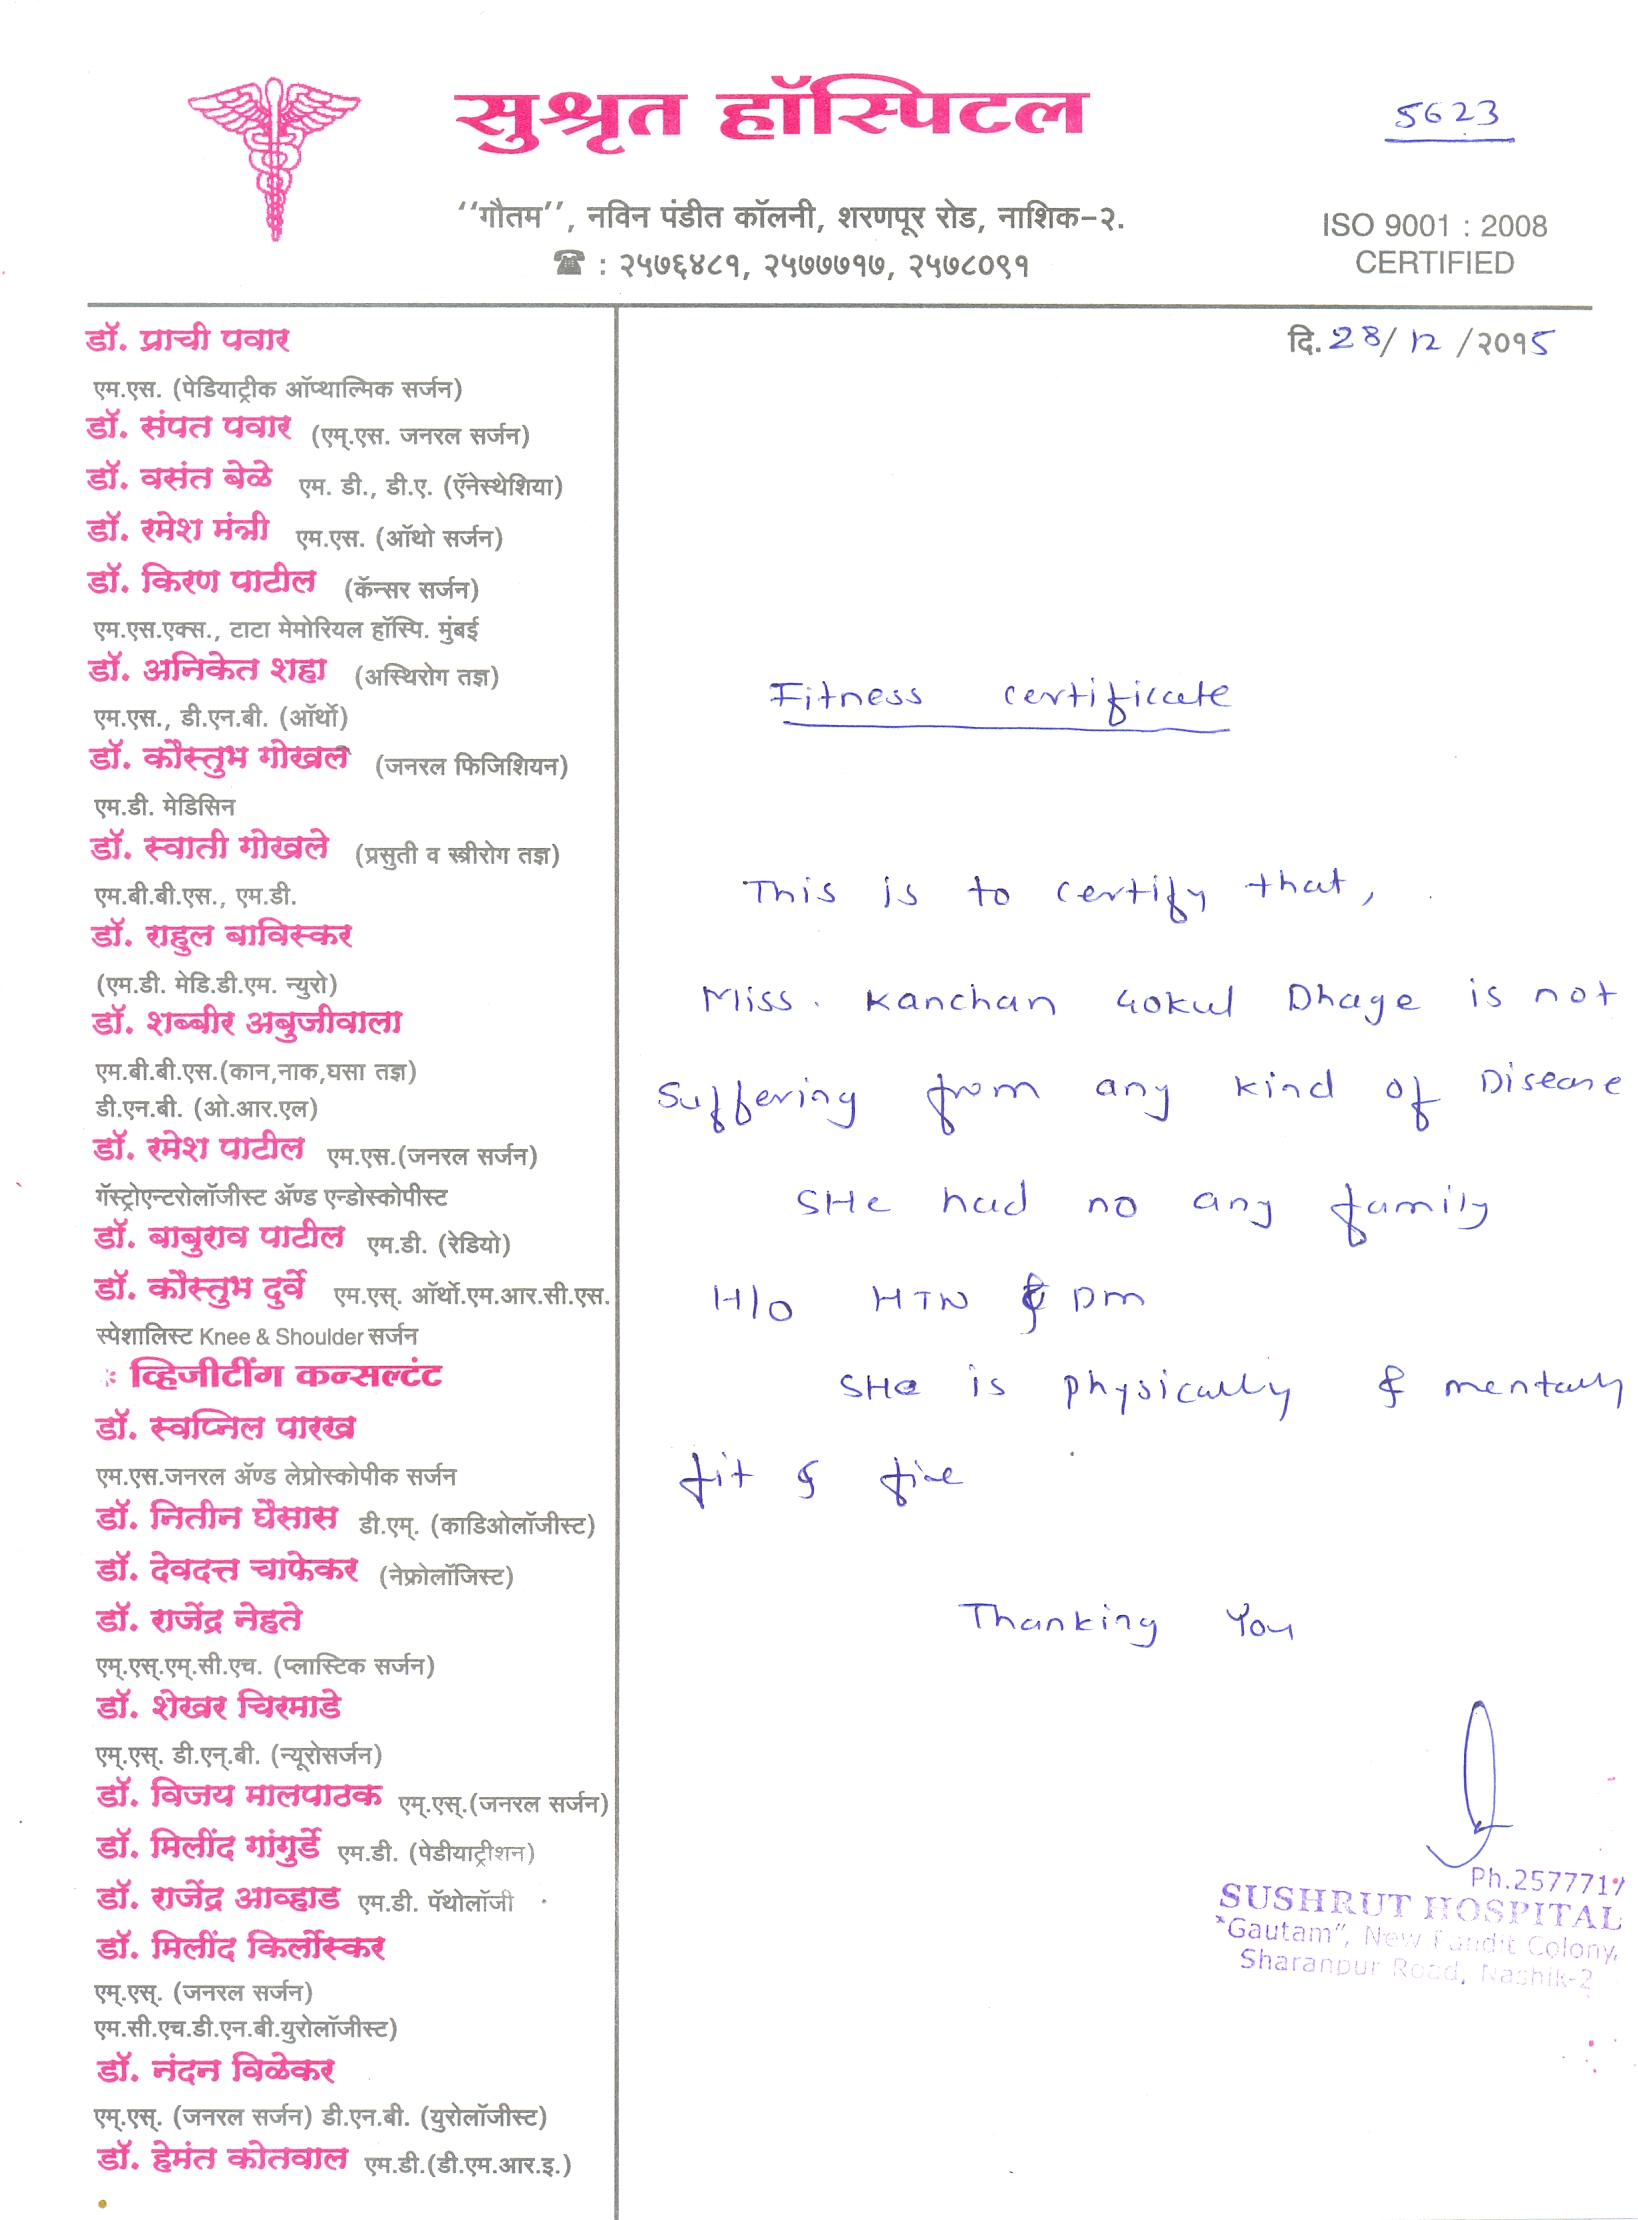 सुश्रृत हॉस्पिटल
5623
‘‘गौतम’’, नविन पंडीत कॉलनी, शरणपूर रोड, नाशिक-२.
☎ : २५७६४८१, २५७७७१७, २५७८०९१
ISO 9001 : 2008
CERTIFIED
दि. 28/ 12 /२०१5
डॉ. प्राची पवार
एम.एस. (पेडियाट्रीक ऑप्थाल्मिक सर्जन)
डॉ. संपत पवार (एम्.एस. जनरल सर्जन)
डॉ. वसंत बेळे एम. डी., डी.ए. (ऍनेस्थेशिया)
डॉ. रमेश मंत्री एम.एस. (ऑथो सर्जन)
डॉ. किरण पाटील (कॅन्सर सर्जन)
एम.एस.एक्स., टाटा मेमोरियल हॉस्पि. मुंबई
डॉ. अनिकेत शहा (अस्थिरोग तज्ञ)
एम.एस., डी.एन.बी. (ऑर्थो)
डॉ. कौस्तुभ गोखले (जनरल फिजिशियन)
एम.डी. मेडिसिन
डॉ. स्वाती गोखले (प्रसुती व स्त्रीरोग तज्ञ)
एम.बी.बी.एस., एम.डी.
डॉ. राहुल बाविस्कर
(एम.डी. मेडि.डी.एम. न्युरो)
डॉ. शब्बीर अबुजीवाला
एम.बी.बी.एस.(कान,नाक,घसा तज्ञ)
डी.एन.बी. (ओ.आर.एल)
डॉ. रमेश पाटील एम.एस.(जनरल सर्जन)
गॅस्ट्रोएन्टरोलॉजीस्ट ॲण्ड एन्डोस्कोपीस्ट
डॉ. बाबुराव पाटील एम.डी. (रेडियो)
डॉ. कौस्तुभ दुर्वे एम.एस्. ऑर्थो.एम.आर.सी.एस.
स्पेशालिस्ट Knee & Shoulder सर्जन
* व्हिजीटींग कन्सल्टंट
डॉ. स्वप्निल पारख
एम.एस.जनरल ॲण्ड लेप्रोस्कोपीक सर्जन
डॉ. नितीन घैसास डी.एम्. (काडिओलॉजीस्ट)
डॉ. देवदत्त चाफेकर (नेफ्रोलॉजिस्ट)
डॉ. राजेंद्र नेहते
एम्.एस्.एम्.सी.एच. (प्लास्टिक सर्जन)
डॉ. शेखर चिरमाडे
एम्.एस्. डी.एन्.बी. (न्यूरोसर्जन)
डॉ. विजय मालपाठक एम्.एस्.(जनरल सर्जन)
डॉ. मिलींद गांगुर्डे एम.डी. (पेडीयाट्रीशन)
डॉ. राजेंद्र आव्हाड एम.डी. पॅथोलॉजी
डॉ. मिलींद किर्लोस्कर
एम्.एस्. (जनरल सर्जन)
एम.सी.एच.डी.एन.बी.युरोलॉजीस्ट)
डॉ. नंदन विळेकर
एम्.एस्. (जनरल सर्जन) डी.एन.बी. (युरोलॉजीस्ट)
डॉ. हेमंत कोतवाल एम.डी.(डी.एम.आर.इ.)
Fitness certificate
This is to certify that,
Miss. Kanchan Gokul Dhage is not
suffering from any kind of Disease
SHe had no any family
H/O HTN & DM
SHe is physically & mentally
fit & fine
Thanking You
Ph.2577717
SUSHRUT HOSPITAL
"Gautam", New Pandit Colony,
Sharanpur Road, Nashik-2